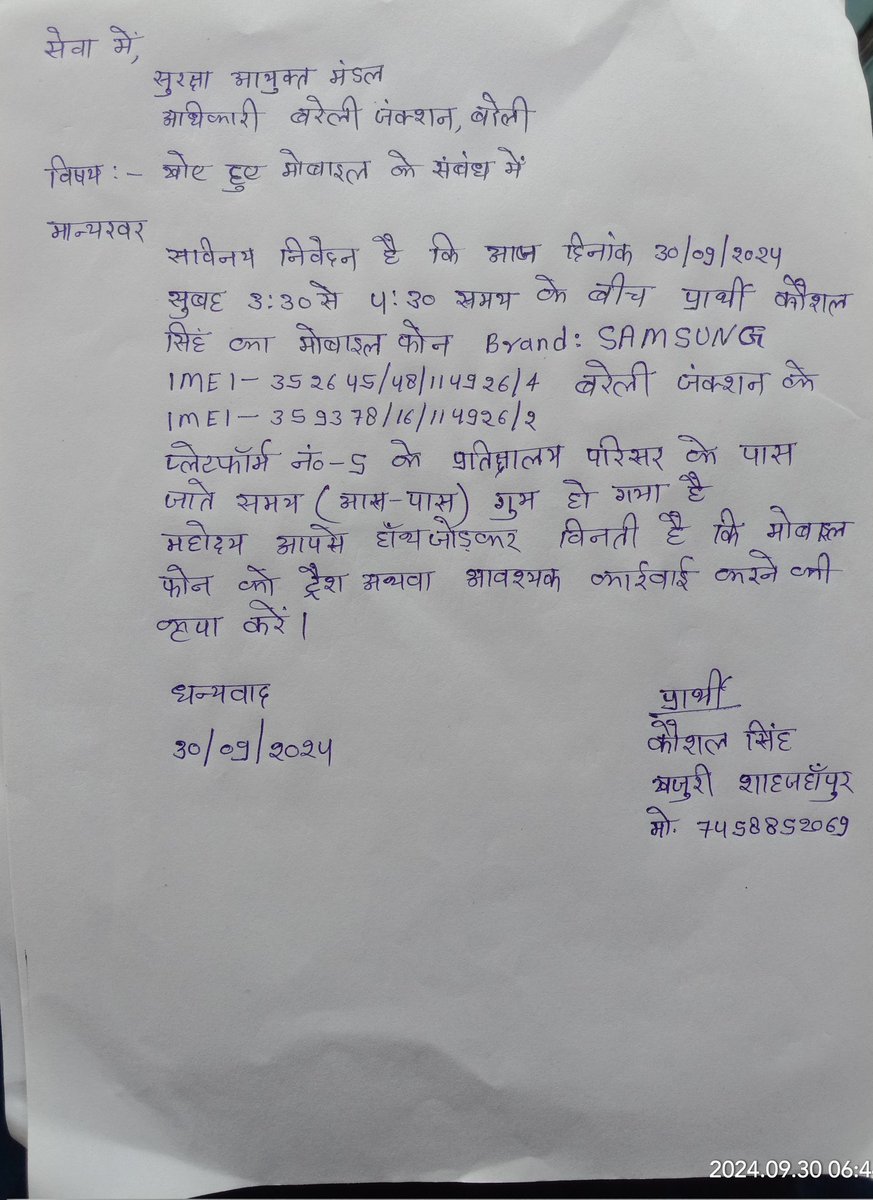 सेवा में,
सुरक्षा आयुक्त मंडल
अधिकारी बरेली जंक्शन, बरेली
विषय :- खोए हुए मोबाइल के संबंध में
मान्यरवर
सविनय निवेदन है कि आज दिनांक 30/09/2024
सुबह 3:30 से 4:30 समय के बीच प्रार्थी कौशल
सिंह का मोबाइल फोन Brand: SAMSUNG
IMEI - 352645/48/114926/4 बरेली जंक्शन के
IMEI - 359378/16/114926/2
प्लेटफॉर्म नं०-5 के प्रतिक्षालय परिसर के पास
जाते समय (आस-पास) गुम हो गया है
महोदय आपसे हाँथ जोड़कर विनती है कि मोबाइल
फोन को ट्रैश अथवा आवश्यक कार्रवाई करने की
कृपा करें।
धन्यवाद
30/09/2024
प्रार्थी
कौशल सिंह
खजुरी शाहजहाँपुर
मो. 7458852069
2024.09.30 06:4